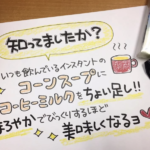 知ってましたか？
いつも飲んでいるインスタントの
コーンスープに
コーヒーミルクをちょい足し!!
まろやかでびっくりするほど
美味しくなるヨ